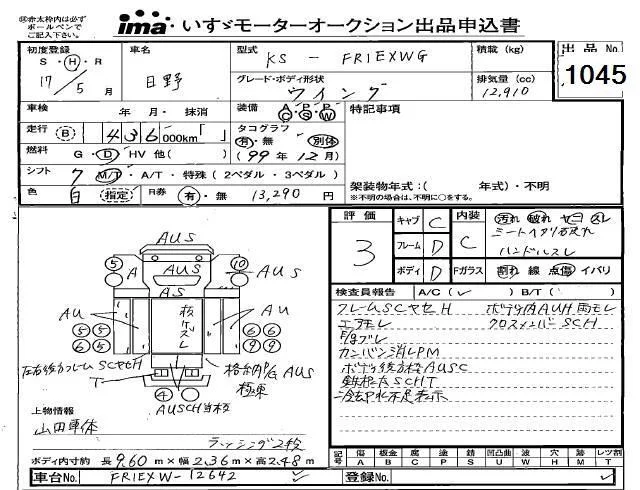 ㊟赤太枠内は必ず
ボールペンで
ご記入下さい。
ima いすゞモーターオークション出品申込書
初度登録
S・H・R
17/5月
車名
日野
型式
KS-FR1EXWG
積載 (kg)
出品 No.
1045
グレード・ボディ形状
ウイング
排気量 (cc)
12,910
車検 年 月・抹消
装備 A P A
C S W
特記事項
走行 B 436,000km「 」
タコグラフ
有・無 別体
(99年12月)
燃料 G・D HV 他( )
シフト 7 M/T・A/T・特殊(2ペダル・3ペダル)
色 白 指定 R券 有・無 13,290円
架装物年式:( 年式)・不明
※不明の場合は、不明に○をする。
評価
3
キャブ C
フレーム D
ボディ D
内装
C
汚れ 破れ ヤニ スレ
シートヘタリ破れ
ハンドルスレ
Fガラス 割れ 線 点傷 イバリ
検査員報告 A/C(✓) B/T( )
フレームSCヤセH
エアモレ
カンバン消しPM
ボディ後方枠AUSC
ボディ内AUH雨モレ
クロスメンバーSCH
AUS
AUS
AS
A
AUS
AU
AU
5
10
5 5
5 5
6 6
9 9
4
左右後方フレームSCヤセH
格納P/G AUS
AUSCH
上物情報
山田車体
ラッシング2段
ボディ内寸約 長9.60m×幅2.36m×高2.48m
車台No. FR1EXW-12642
記号
傷 A
板金 B
腐 C
塗 P
錆 S
凹凸曲 U
波 W
穴 H
跡 M
レツ割 T
登録No.